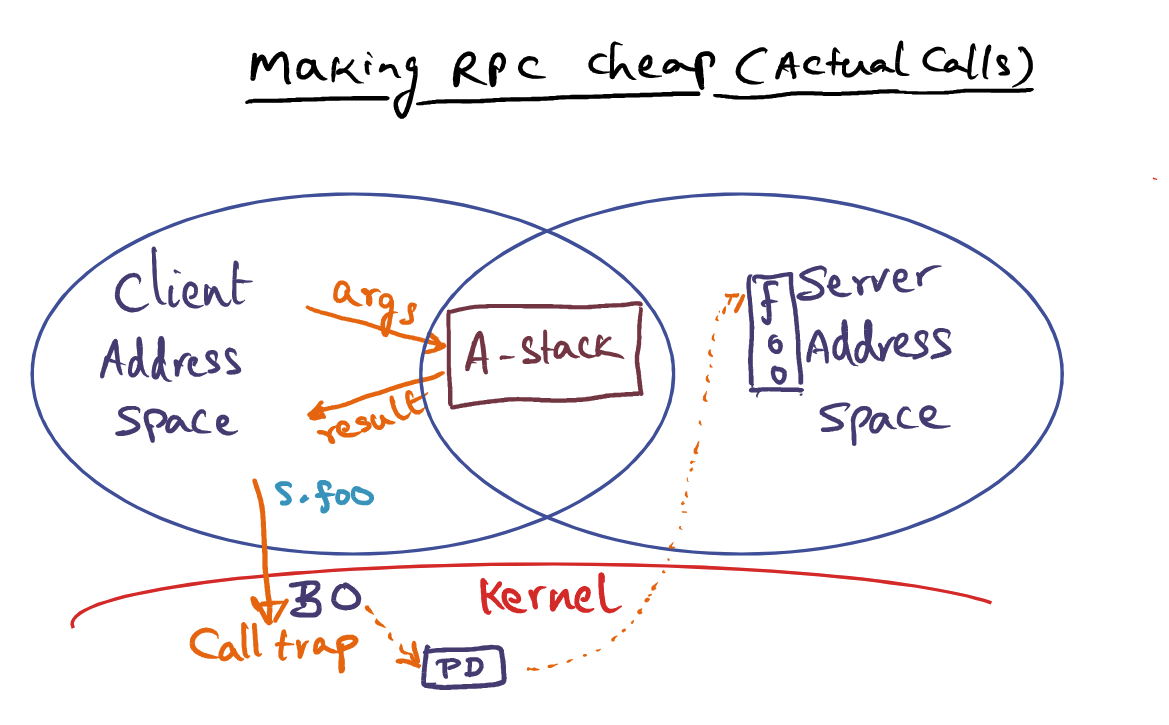 Making RPC cheap (Actual Calls)
Client
Address
Space
args
result
A-stack
foo
Server
Address
Space
S.foo
BO
Kernel
Call trap
PD